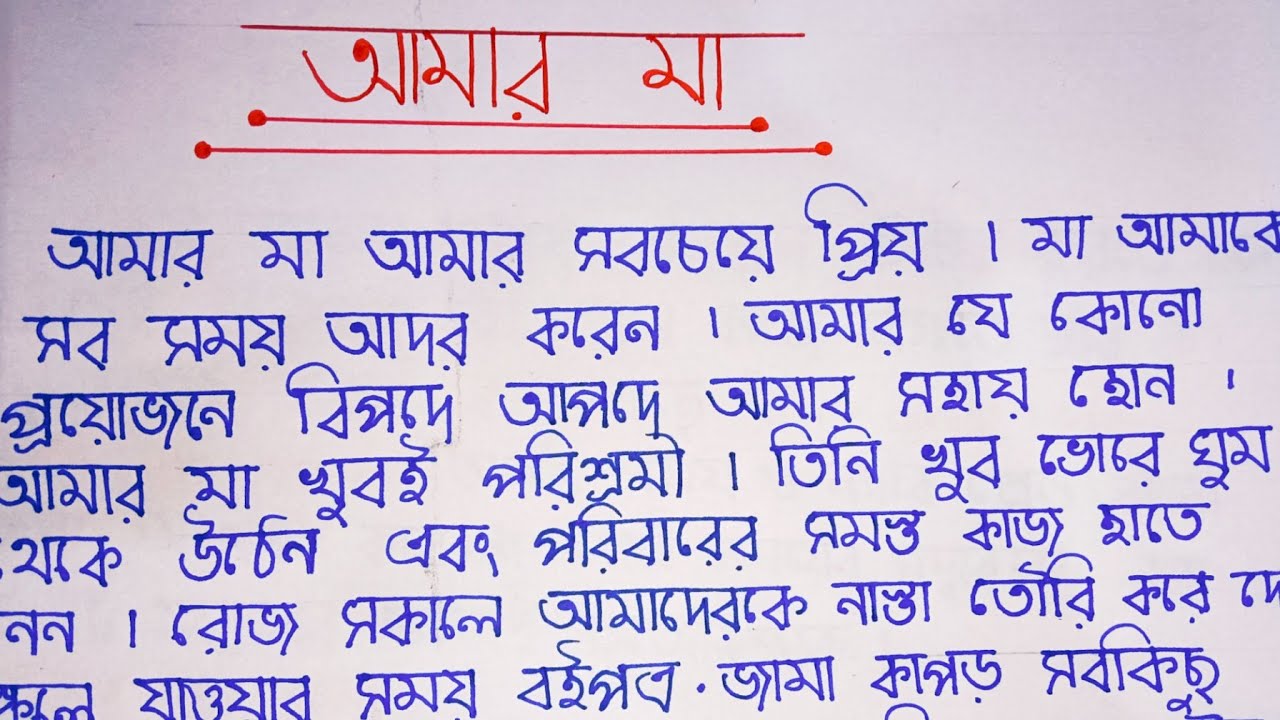 আমার মা
আমার মা আমার সবচেয়ে প্রিয় । মা আমাকে
সব সময় আদর করেন । আমার যে কোনো
প্রয়োজনে বিপদে আপদে আমার সহায় হোন ।
আমার মা খুবই পরিশ্রমী । তিনি খুব ভোরে ঘুম
থেকে উঠেন এবং পরিবারের সমস্ত কাজ হাতে
নেন । রোজ সকালে আমাদেরকে নাস্তা তৌরি করে দে
যাওয়ার সময় বইপত্র . জামা কাপড় সবকিছু